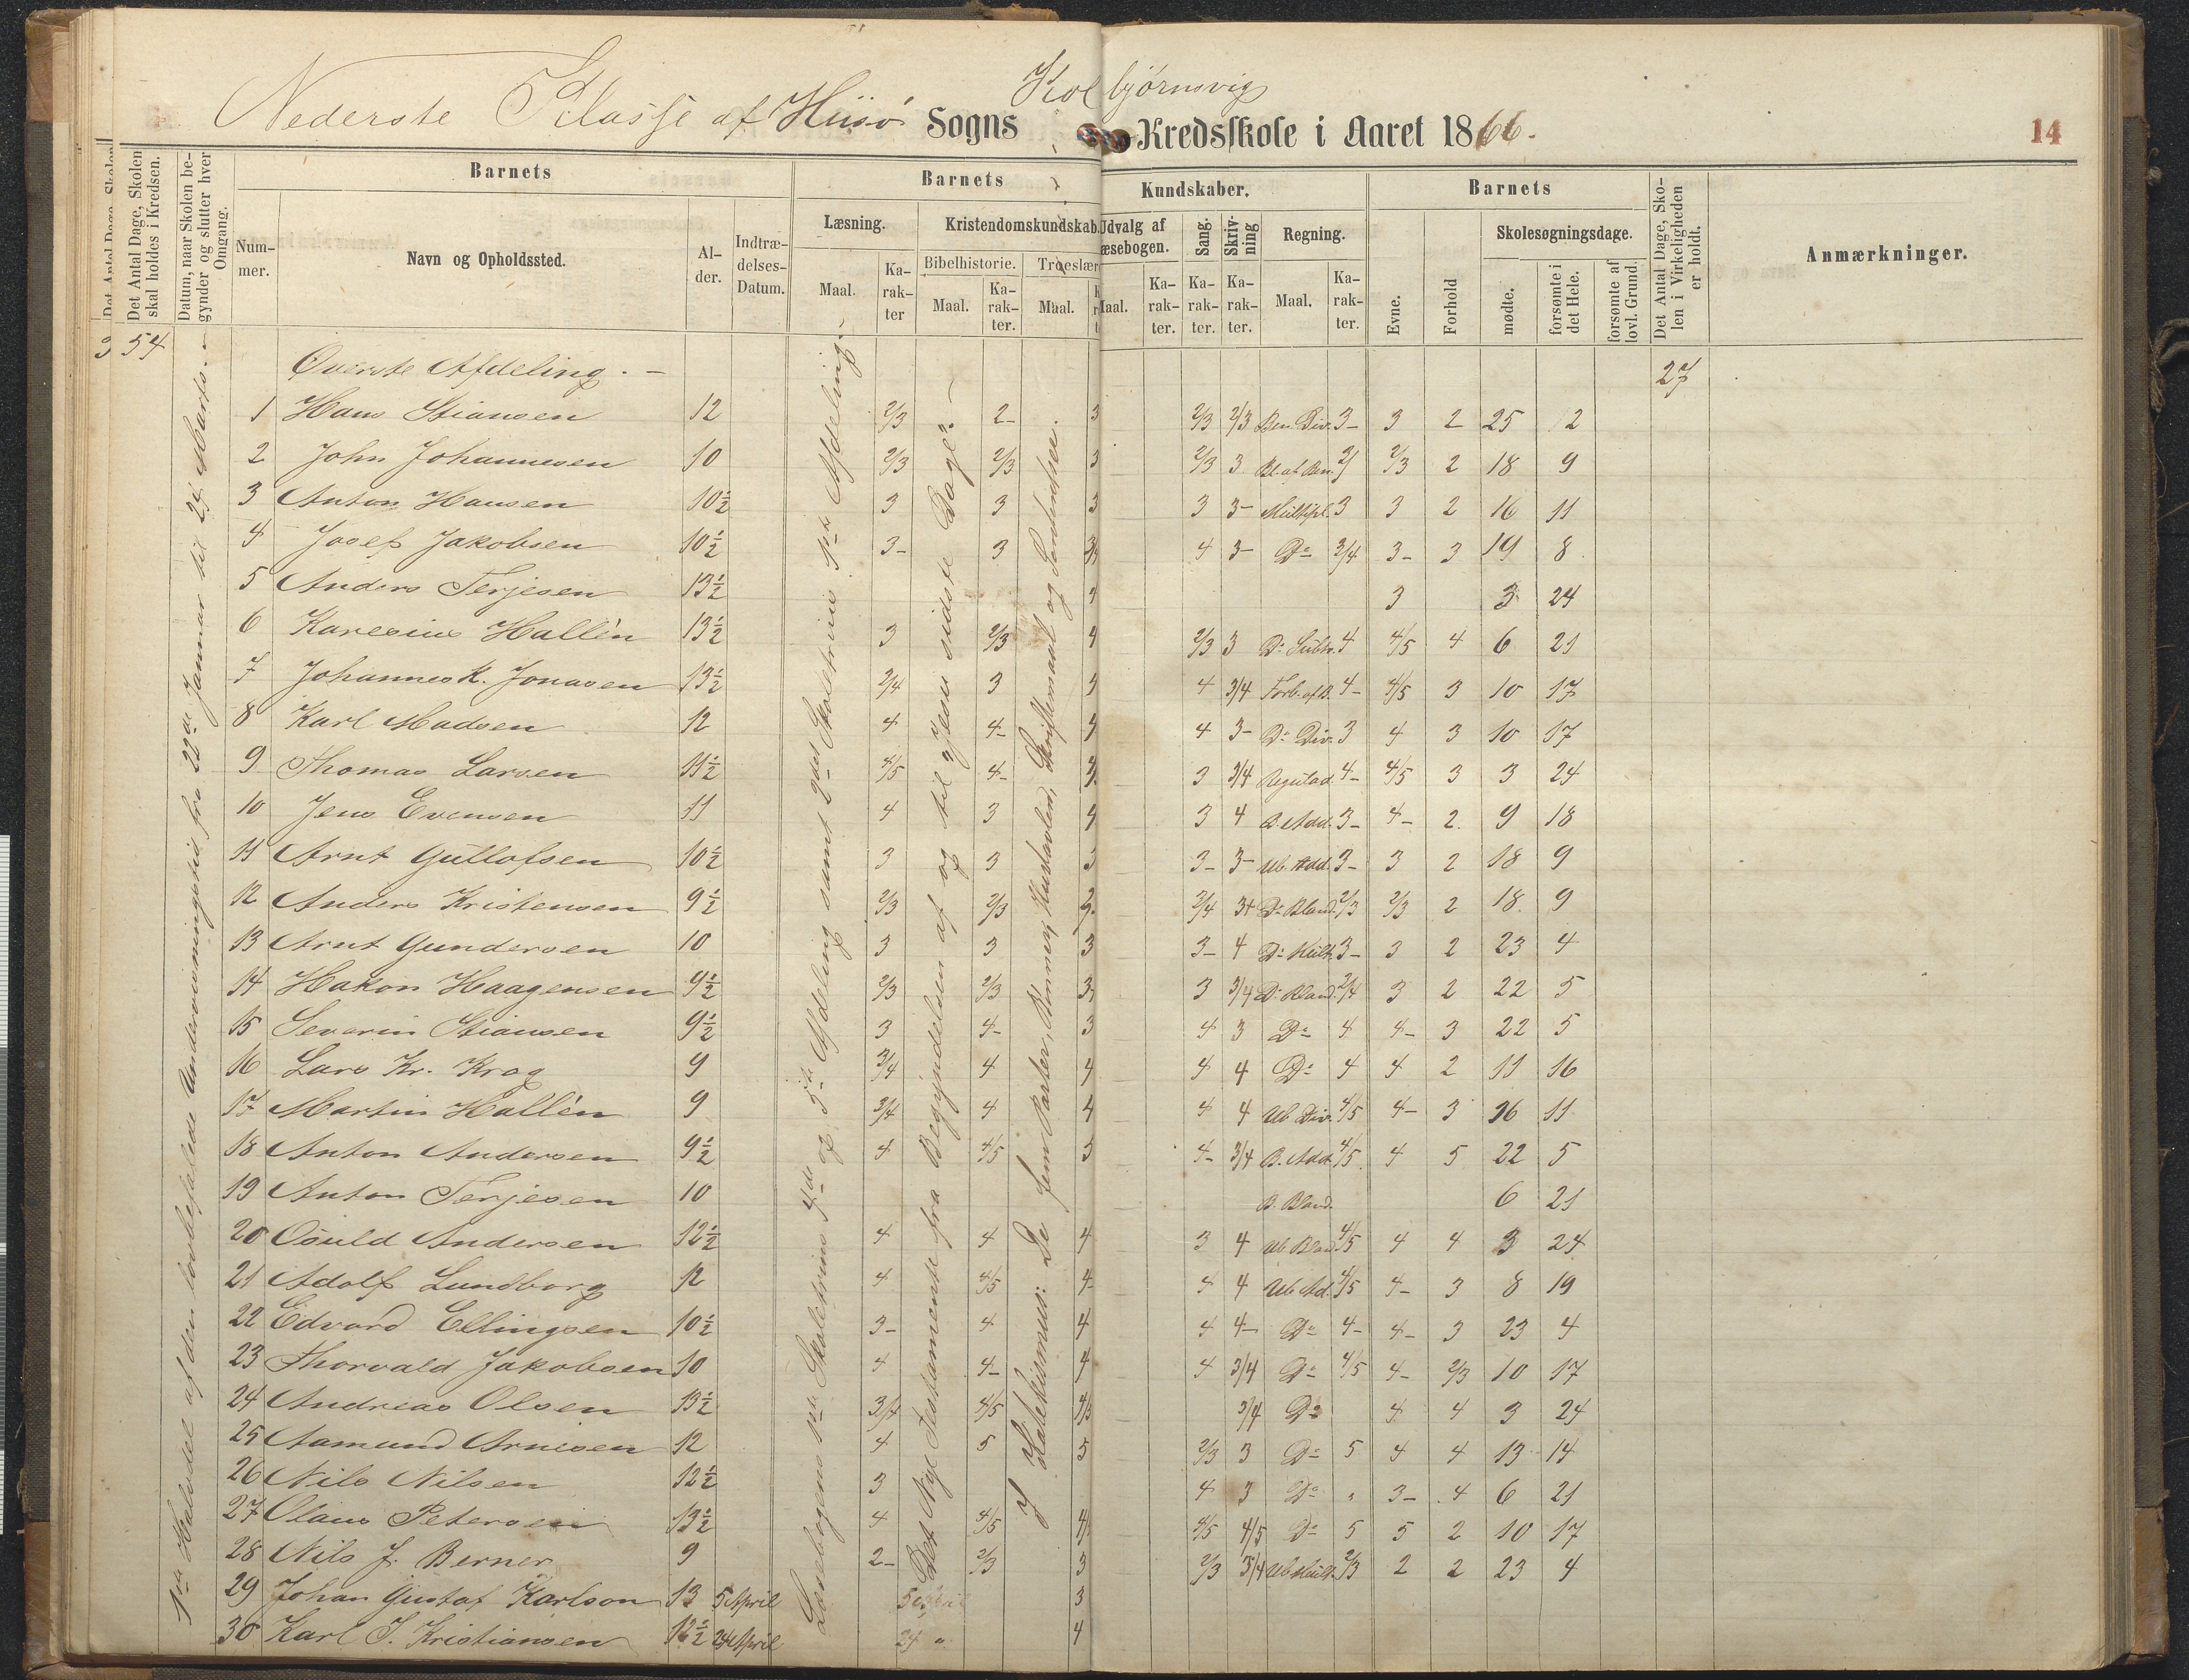 Kolbjørnsvig
Nederste Klasse af Hiisø Sogns Kredsskole i Aaret 1866.
14
Det Antal Dage, Skolen skal holdes i Kredsen.
Datum, naar Skolen begynder og slutter hver Omgang.
Barnets
Barnets Kundskaber.
Barnets
Det Antal Dage, Skolen i Virkeligheden er holdt.
Anmærkninger.
Nummer. Navn og Opholdssted. Alder. Indtrædelses-Datum.
Læsning. Kristendomskundskab. Udvalg af Læsebogen. Sang. Skrivning Regning.
Evne. Forhold Skolesøgningsdage.
Bibelhistorie. Troeslær
Maal. Karakter Maal. Karakter. Maal. Maal. Karakter. Karakter. Karakter. Maal. Karakter.
mødte. forsømte i det Hele. forsømte af lovl. Grund.
3 54
Øverste Afdeling. 27
1 Hans Stiansen 12 2/3 2- 3 2/3 2/3 Ben. Div. 3- 3 2 25 2
2 John Johannesen 10 2/3 2/3 3 2/3 3 Bl. af Ben. 2/3 2 18 9
3 Anton Hansen 10½ 3 3 3 3 3- Multipl. 3 3 2 16 11
4 Josef Jakobsen 10½ 3- 3 4 3- Do 3/4 3- 3 19 8
5 Anders Terjesen 13½ 4 3 3 24
6 Karesius Hallén 13½ 3 2/3 4 2/3 3 Do Subtr. 4 4/5 4 6 21
7 Johannes K. Jonasen 13½ 3/4 3 4 3/4 Forb. af B. 4- 4/5 3 10 17
8 Karl Madsen 12 4 4- 4 4 3- Do Div. 3 4 3 10 17
9 Thomas Larsen 11½ 4/5 4- 3 3/4 4- 4/5 3 3 24
10 Jens Evensen 11 4 3 4 3 4 B. Add. 3- 4- 2. 9 18
11 Arnt Gullofsen 10½ 3 3 3 3- 3- Ub. Add. 3- 3 2 18 9
12 Anders Kristensen 9½ 2/3 2/3 3/4 3+ Do Bland. 2/3 2/3 2 18. 9
13 Arnt Gundersen 10 3 3 3 3- 4 Do Mult. 3- 3 2 23 4
14 Hakon Haagensen 9½ 2/3 2/3 3 3/4 Do Bland. 3/4 3 2 22 5
15 Severin Stiansen 9½ 3 4- 3 4 3 Do 4 4- 3 22 5
16 Lars Kr. Krog 9 3/4 4 4 4 4 Do 4 4 2 11 16
17 Martin Hallén 9 3/4 4 4 4 4 Ub Div. 4/5 4- 3 16 11
18 Anton Andersen 9½ 4 4/5 4- 3/4 B. Add. 4/5 4 5 22 5
19 Anton Terjesen 10 B. Bland. 6 21
20 Osuld Andersen 12½ 4 4 4 3 4 Ub Bland 4/5 4 4 3 24
21 Adolf Lundborg 12 4 4/5 4- 4 4 Ub Ad. 4/5 4- 3 8 19
22 Edvard Ellingsen 10½ 3- 4 4 4 4- Do 4- 4- 3 23 4
23 Thorvald Jakobsen 10 4 4- 4 4 3/4 Do 4/5 4- 2/3 10 17
24 Andreas Olsen 13½ 3/4 4/5 3/4 Do 4 4 3 24
25 Aamund Arnesen 12 4 5 5 2/3 3 Do 5 4 4 13 14
26 Nils Nilsen 12½ 3 4 3 Do " 3- 4 6 21
27 Olaus Petersen 13½ 4 4/5 4/5 4/5 Do 5 5 2 10 17
28 Nils J. Berner 9 2- 2/3 3 2/3 3/4 Ub Mult. 2/3 2 2 23 4
29 Johan Gustaf Karlson 13 5 April 3
30 Karl J. Kristiansen 12½ 24 April 24 " 4
1ste Halvdel af den lovbefalede Underviisningstid, fra 22de Januar til 24 Marts.
Læsebogens 1ste Skoletrins 4de og 5te Afdeling samt 2det Skoletrins 1ste Afdeling.
Det Nye Testamente fra Begyndelsen af og til
I Katekismus: De fem Parter,